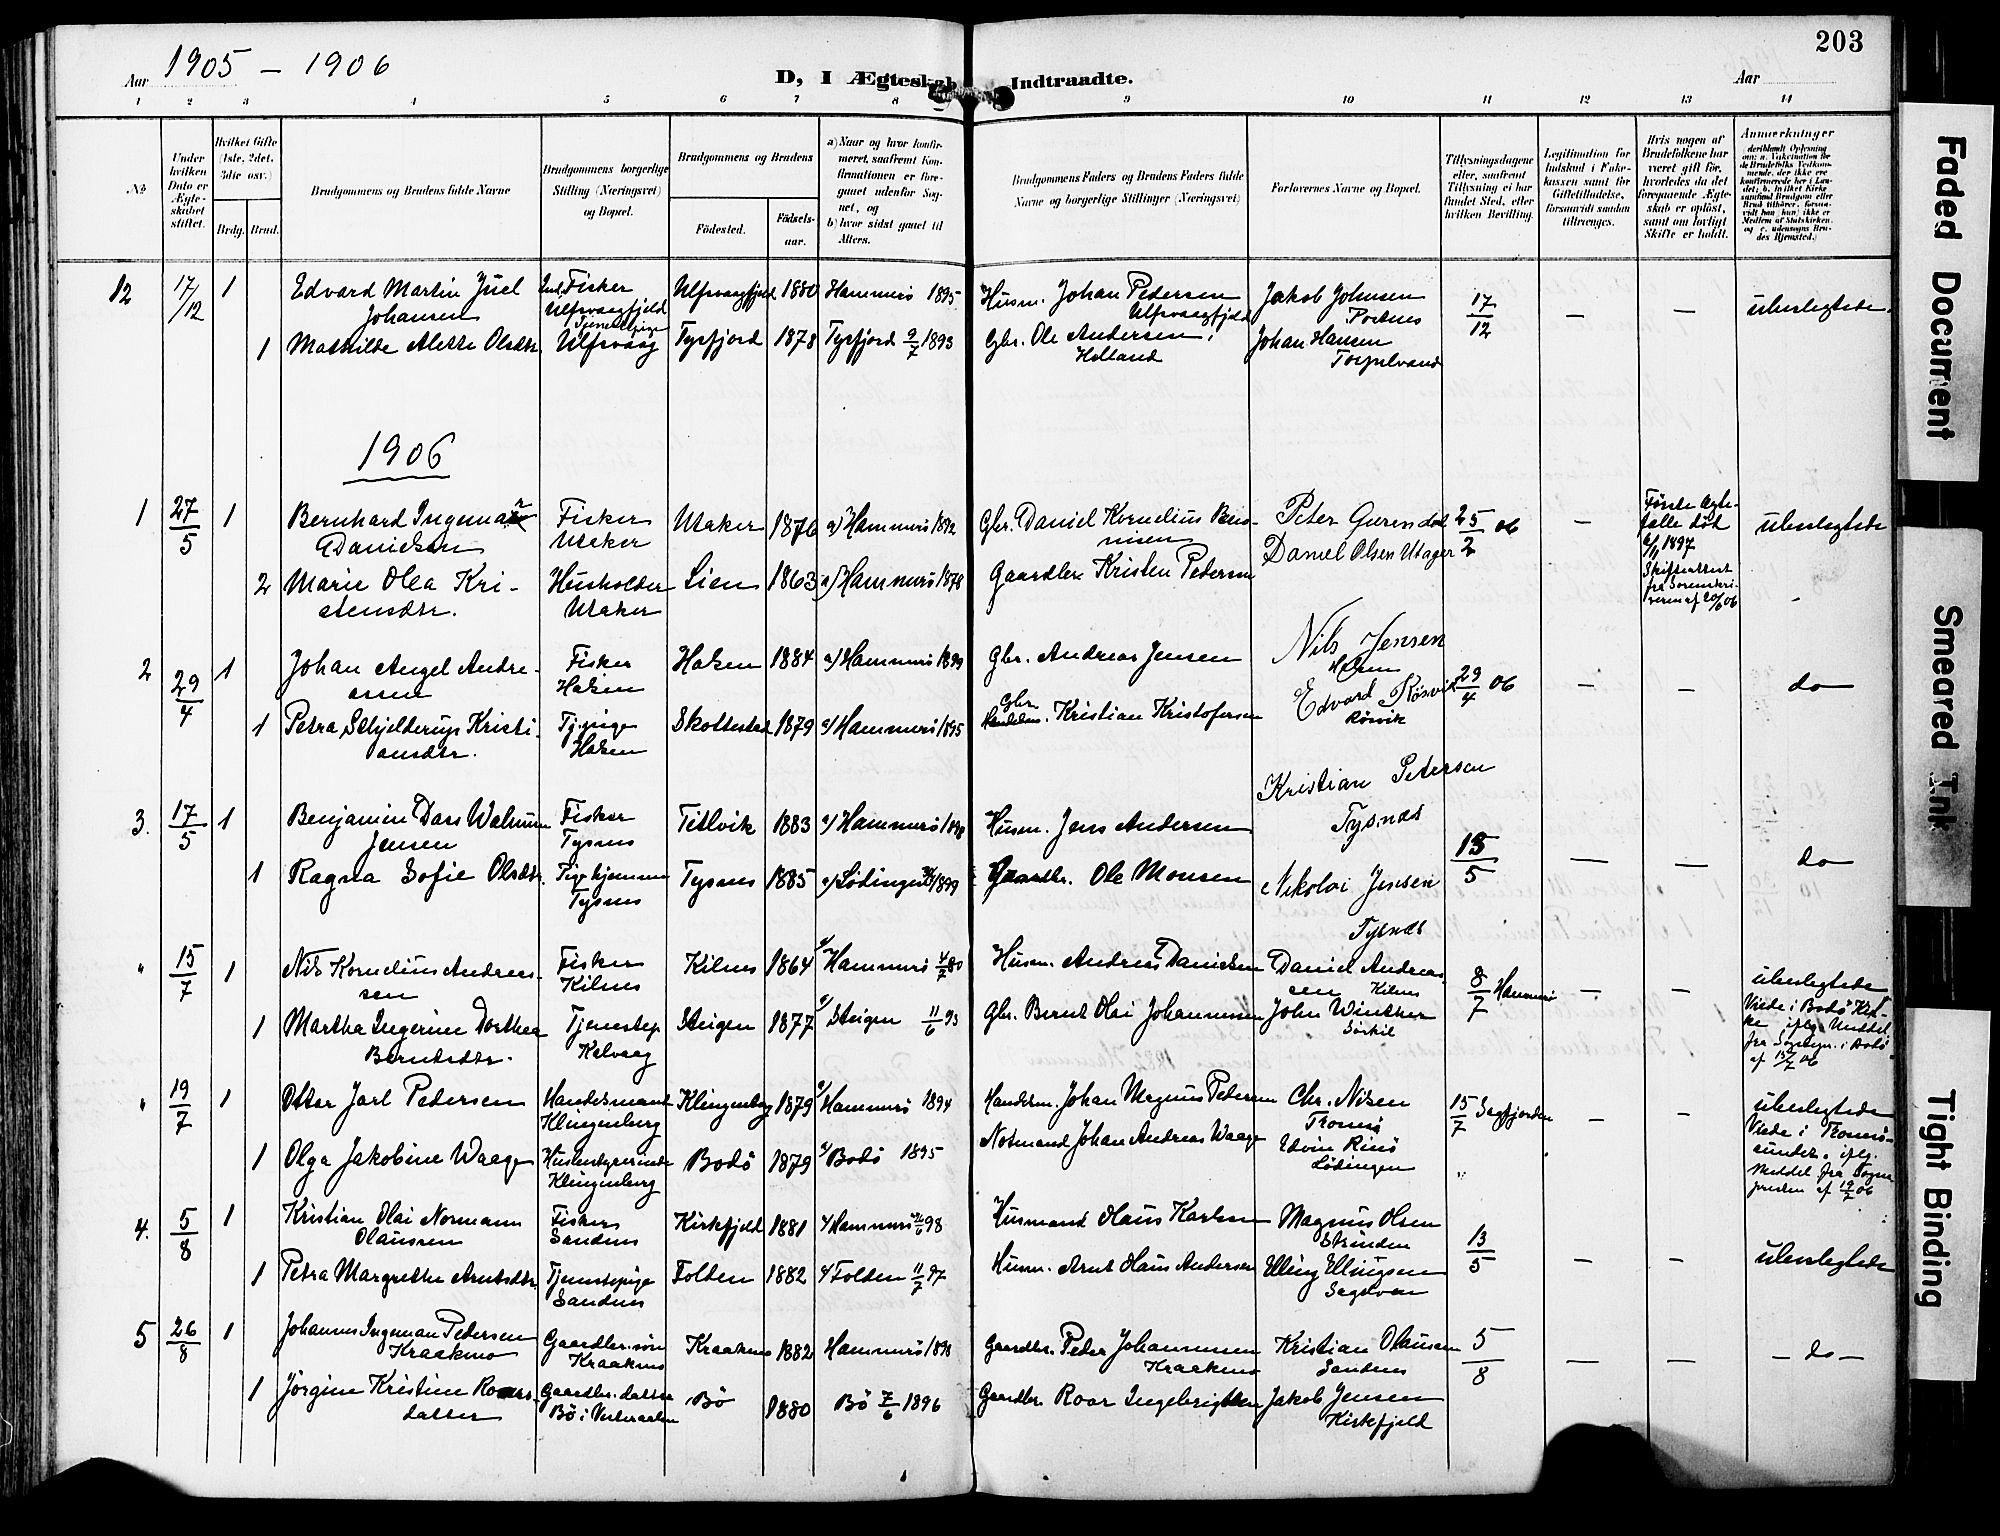 Aar 1905 – 1906
D, I Ægteskab Indtraadte.
Aar
203
1 2 3 4 5 6 7 8 9 10 11 12 13 14
No
Under hvilken Dato er Ægteskabet stiftet.
Hvilket Gifte (1ste, 2det, 3die osv.)
Brdg. Brud.
Brudgommens og Brudens fulde Navne
Brudgommens borgerlige Stilling (Næringsvei) og Bopæl.
Brudgommens og Brudens
Fødested.
Fødselsaar.
a) Naar og hvor konfirmeret, saafremt Konfirmationen er foregaaet udenfor Sognet, og
b) hvor sidst gaaet til Alters.
Brudgommens Faders og Brudens Faders fulde Navne og borgerlige Stillinger (Næringsvei)
Forlovernes Navne og Bopæl.
Tillysningsdagene eller, saafremt Tillysning ei har fundet Sted, efter hvilken Bevilling.
Legitimation for Indskud i Enkekassen samt for Giftetilladelse, forsaavidt saadan tiltrænges.
Hvis nogen af Brudefolkene har været gift før, hvorledes da det foregaaende Ægteskab er opløst, samt om lovligt Skifte er holdt.
Anmerkninger
12 17/12 1 Edvard Martin Juel Johansen Fisker Ulfsvaagfjeld Ulfsvaagfjeld 1880 Hammerø 1895 Husm. Johan Pedersen Ulfsvaagfjeld Jakob Johnsen 17/12 – – ubeslegtede.
1 Mathilde Alette Olsdtr. Tjenestepige Ulfsvaag Tysfjord 1878 Tysfjord 9/7 1893 Gbr. Ole Andersen, Helland Johan Hansen
1906
1 27/5 1 Bernhard Ingemar Danielsen Fisker Utaker Utaker 1876 a) Hammerø 1892 Gbr. Daniel Kornelius Peter Gerendal 25/2 06 – Første Ægtefælle død 1897 Skifteattest fra Sorenskriveren af 20/6 06 ubeslegtede
2 Marie Olea Kristensdtr. Husholder Utaker Lien 1863 a) Hammerø 1878 Gaardbr. Kristen Pedersen Daniel Olsen Utager
2 29/4 1 Johan Angel Andreassen Fisker Halsen Halsen 1884 a) Hammerø 1899 Gbr. Andreas Jensen Nils Jensen 29/4 06 – – do
1 Petra Schjelderup Kristiansdtr. Halsen Skottestad 1879 a) Hammerø 1895 Gbr. Kristian Kristofersen Edvard Rørvik Rørvik
3. 17/5 1 Benjamin Dass Walnum Jensen Fisker Tysnes Titlvik 1883 a) Hammerø 1898 Husm. Jens Andersen Kristian Petersen Tysnes 13/5 – – do
1 Ragna Sofie Olsdtr. Tysnes Tysnes 1885 a) Lødingen 1899 Gaardbr. Ole Monsen Nikolai Jensen Tysnes
" 15/7 1 Nils Kornelius Andreassen Fisker Kilnes Kilnes 1864 a/ Hammerø 4/7 80 Husm. Andreas Danielsen Daniel Andreassen Kilnes 8/7 Hammerø – – ubeslegtede
1 Martha Ingerine Dorthea Berntsdtr. Tjenestep. Kalvaag Steigen 1877 a/ Steigen 11/6 93 Gbr. Bernt Olai Johannessen John Winther Sørkil Viede i Bodø Kirke, iflg. Meddel. fra Sognepr. i Bodø af 15/7 06
" 19/7 1 Otter Jarl Pedersen Handelsmand Klingenberg Klingenberg 1879 a/ Hammerø 1894 Handelsm. Johan Magnus Pedersen Chr. Nilsen Tromsø 15/7 Sagfjorden – – ubeslegtede
1 Olga Jakobine Waage Husbestyrerinde Klingenberg Bodø 1879 a/ Bodø 1895 Notmand Johan Andreas Waage Edvin Rinø Lødingen " Viede i Tromsøsundet, iflg. Meddel. fra Sognepresten af 19/7 06
4. 5/8 1 Kristian Olai Normann Olaussen Fisker Sandnes Kirkfjeld 1881 a/ Hammerø 98 Husmand Olaus Karlsen Magnus Olsen Strinden 13/5 – – ubeslegtede
1 Petra Margrethe Arntsdtr. Tjenestepige Sandnes Folden 1882 a/ Folden 11/7 97 Husm. Arnt Hans Andersen Elling Ellingsen Sagelven
5 26/8 1 Johannes Ingeman Pedersen Kraakmo Gaardbr.søn Kraakmo Kraakmo 1882 Hammerø 1898 Gaardbr. Peder Johannessen Kraakmo Kristian Olausen Sandnes 5/8 – – – do –
1 Jørgine Kristine Roarsdatter Gaardbr. datter Bø i Vesteraalen Bø 1880 Bø 7/6 1896 Gaardbr Roar Ingebrigtsen Jakob Jensen Kirkfjeld
Faded Document
Smeared Ink
Tight Binding